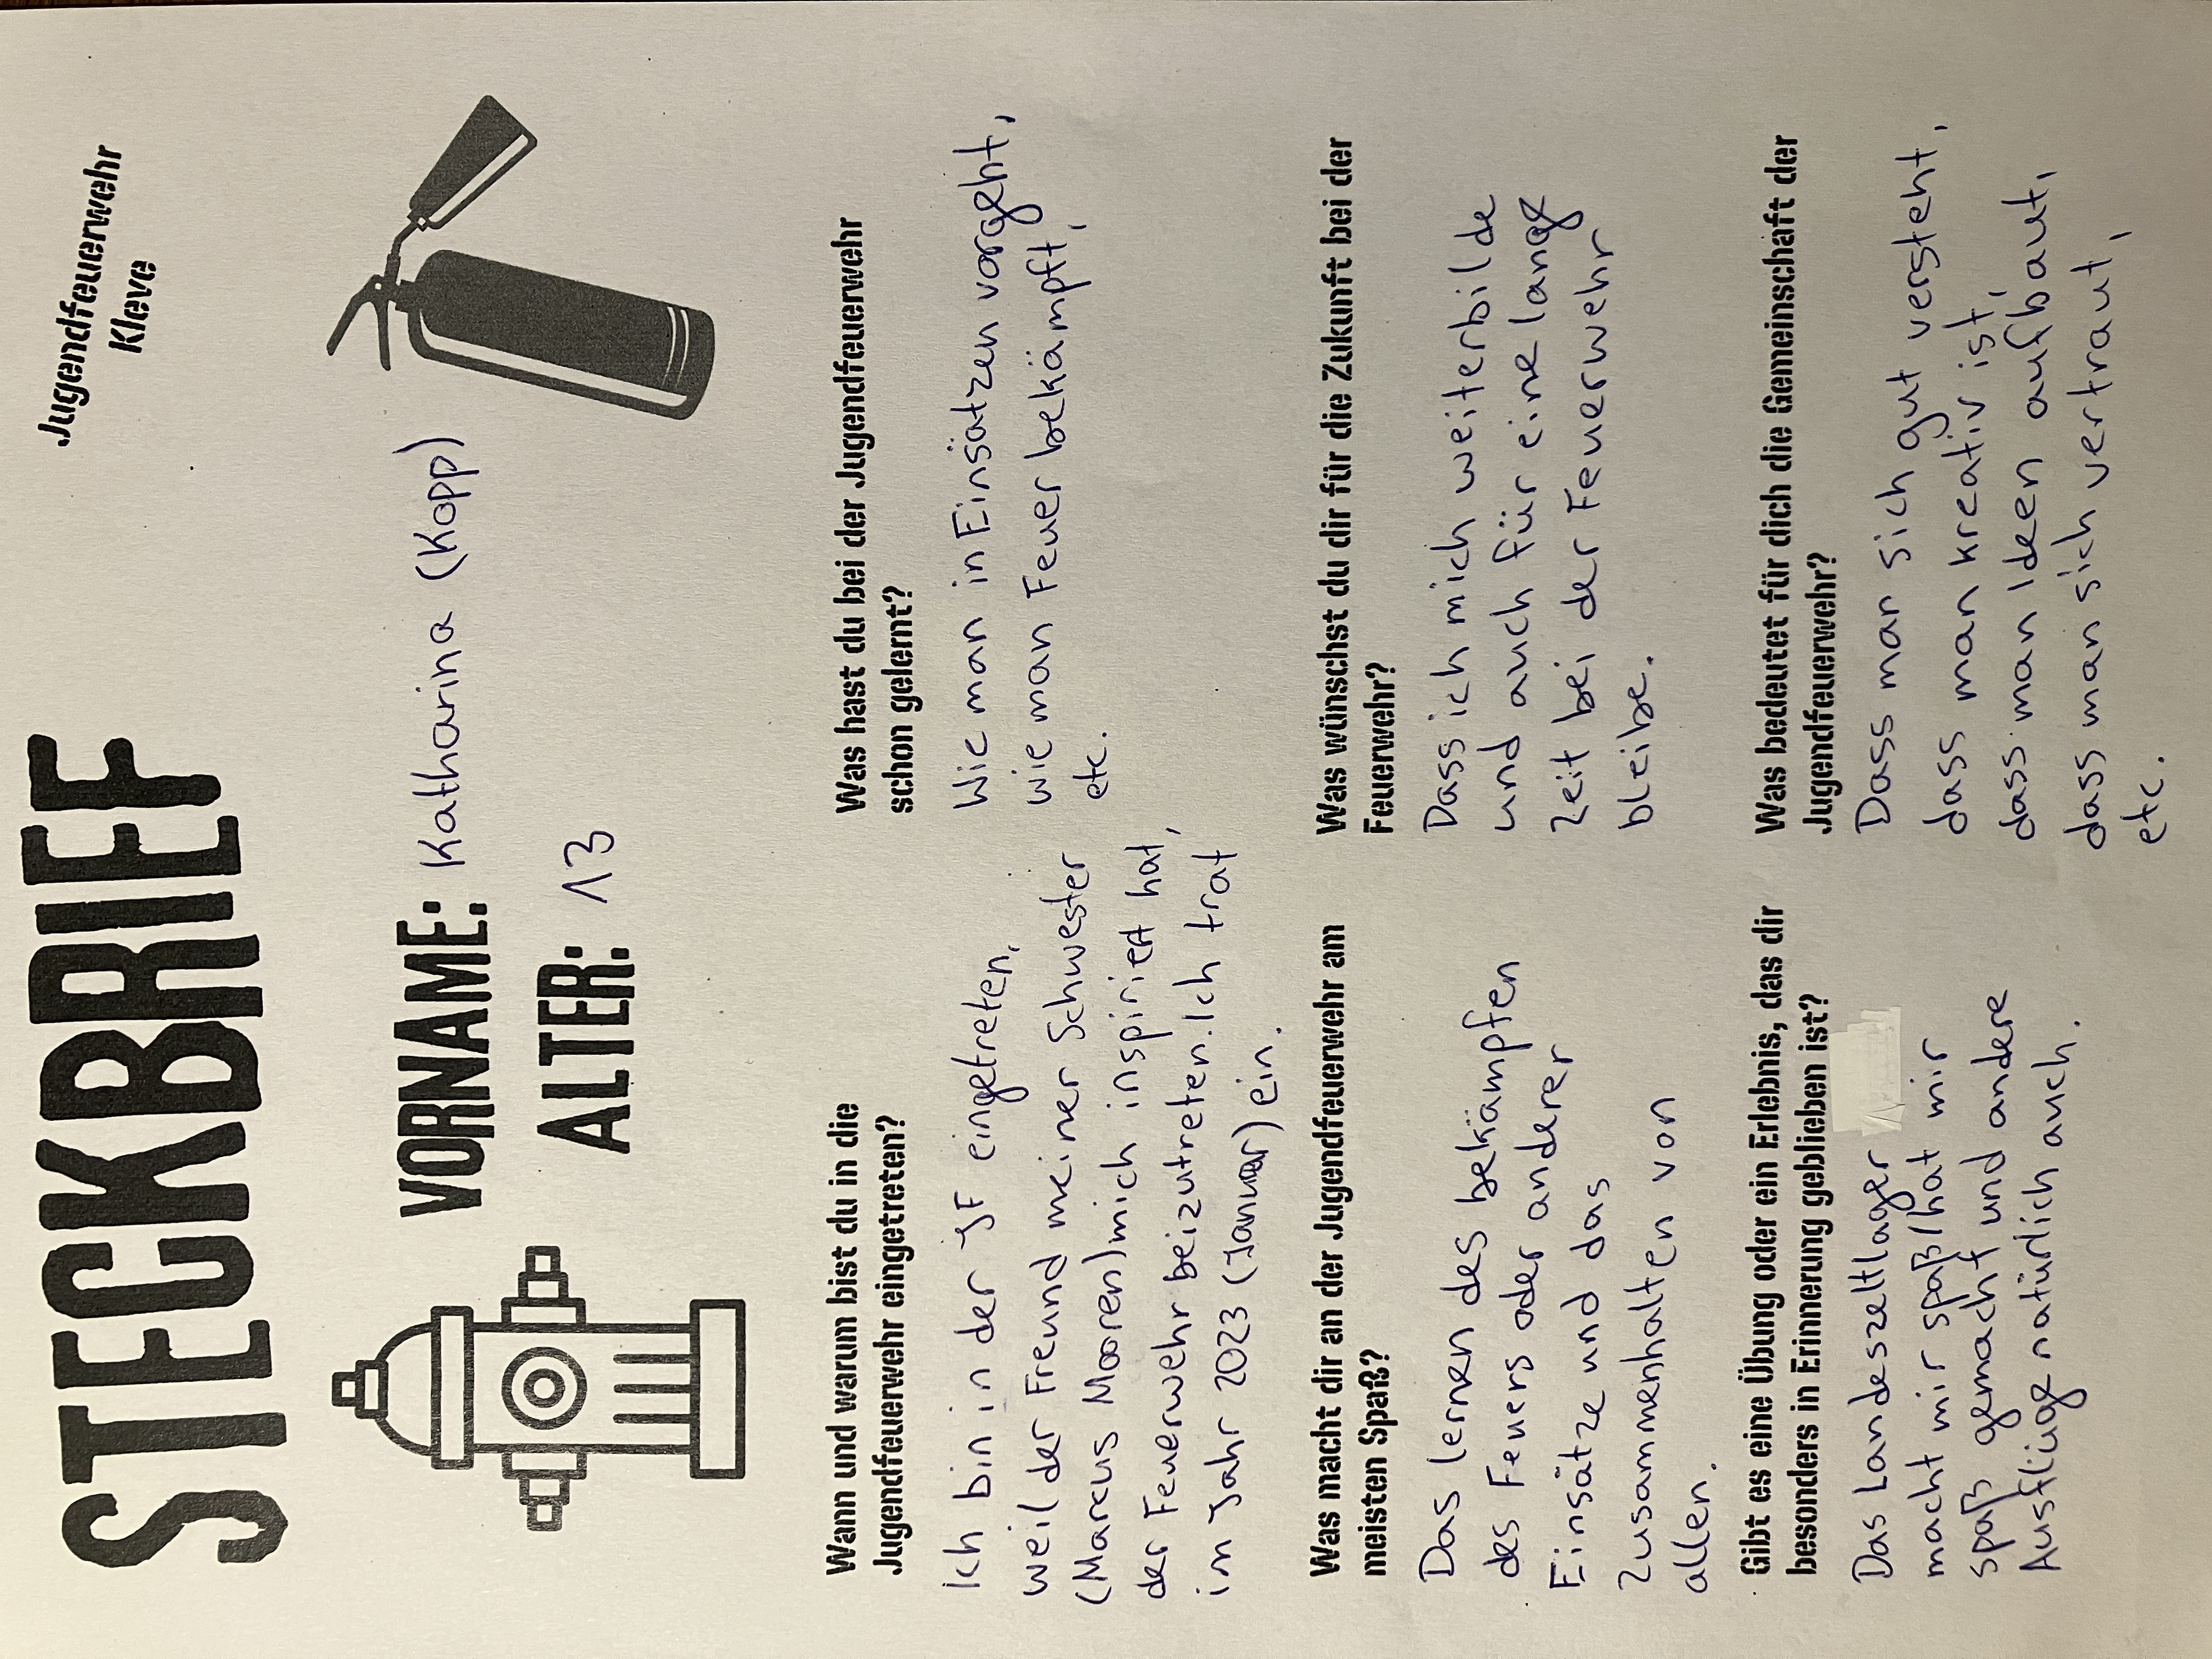 Jugendfeuerwehr
Kleve
STECKBRIEF
VORNAME: Katharina (Kopp)
ALTER: 13
Wann und warum bist du in die
Jugendfeuerwehr eingetreten?
Ich bin in der JF eingetreten,
weil der Freund meiner Schwester
(Marcus Mooren) mich inspiriert hat,
der Feuerwehr beizutreten. Ich trat
im Jahr 2023 (Januar) ein.
Was hast du bei der Jugendfeuerwehr
schon gelernt?
Wie man in Einsätzen vorgeht,
wie man Feuer bekämpft,
etc.
Was macht dir an der Jugendfeuerwehr am
meisten Spaß?
Das lernen des bekämpfen
des Feuers oder anderer
Einsätze und das
zusammenhalten von
allen.
Was wünschst du dir für die Zukunft bei der
Feuerwehr?
Dass ich mich weiterbilde
und auch für eine lange
zeit bei der Feuerwehr
bleibe.
Gibt es eine Übung oder ein Erlebnis, das dir
besonders in Erinnerung geblieben ist?
Das Landeszeltlager
macht mir spaß/hat mir
spaß gemacht und andere
Ausflüge natürlich auch.
Was bedeutet für dich die Gemeinschaft der
Jugendfeuerwehr?
Dass man sich gut versteht,
dass man kreativ ist,
dass man Ideen aufbaut,
dass man sich vertraut,
etc.